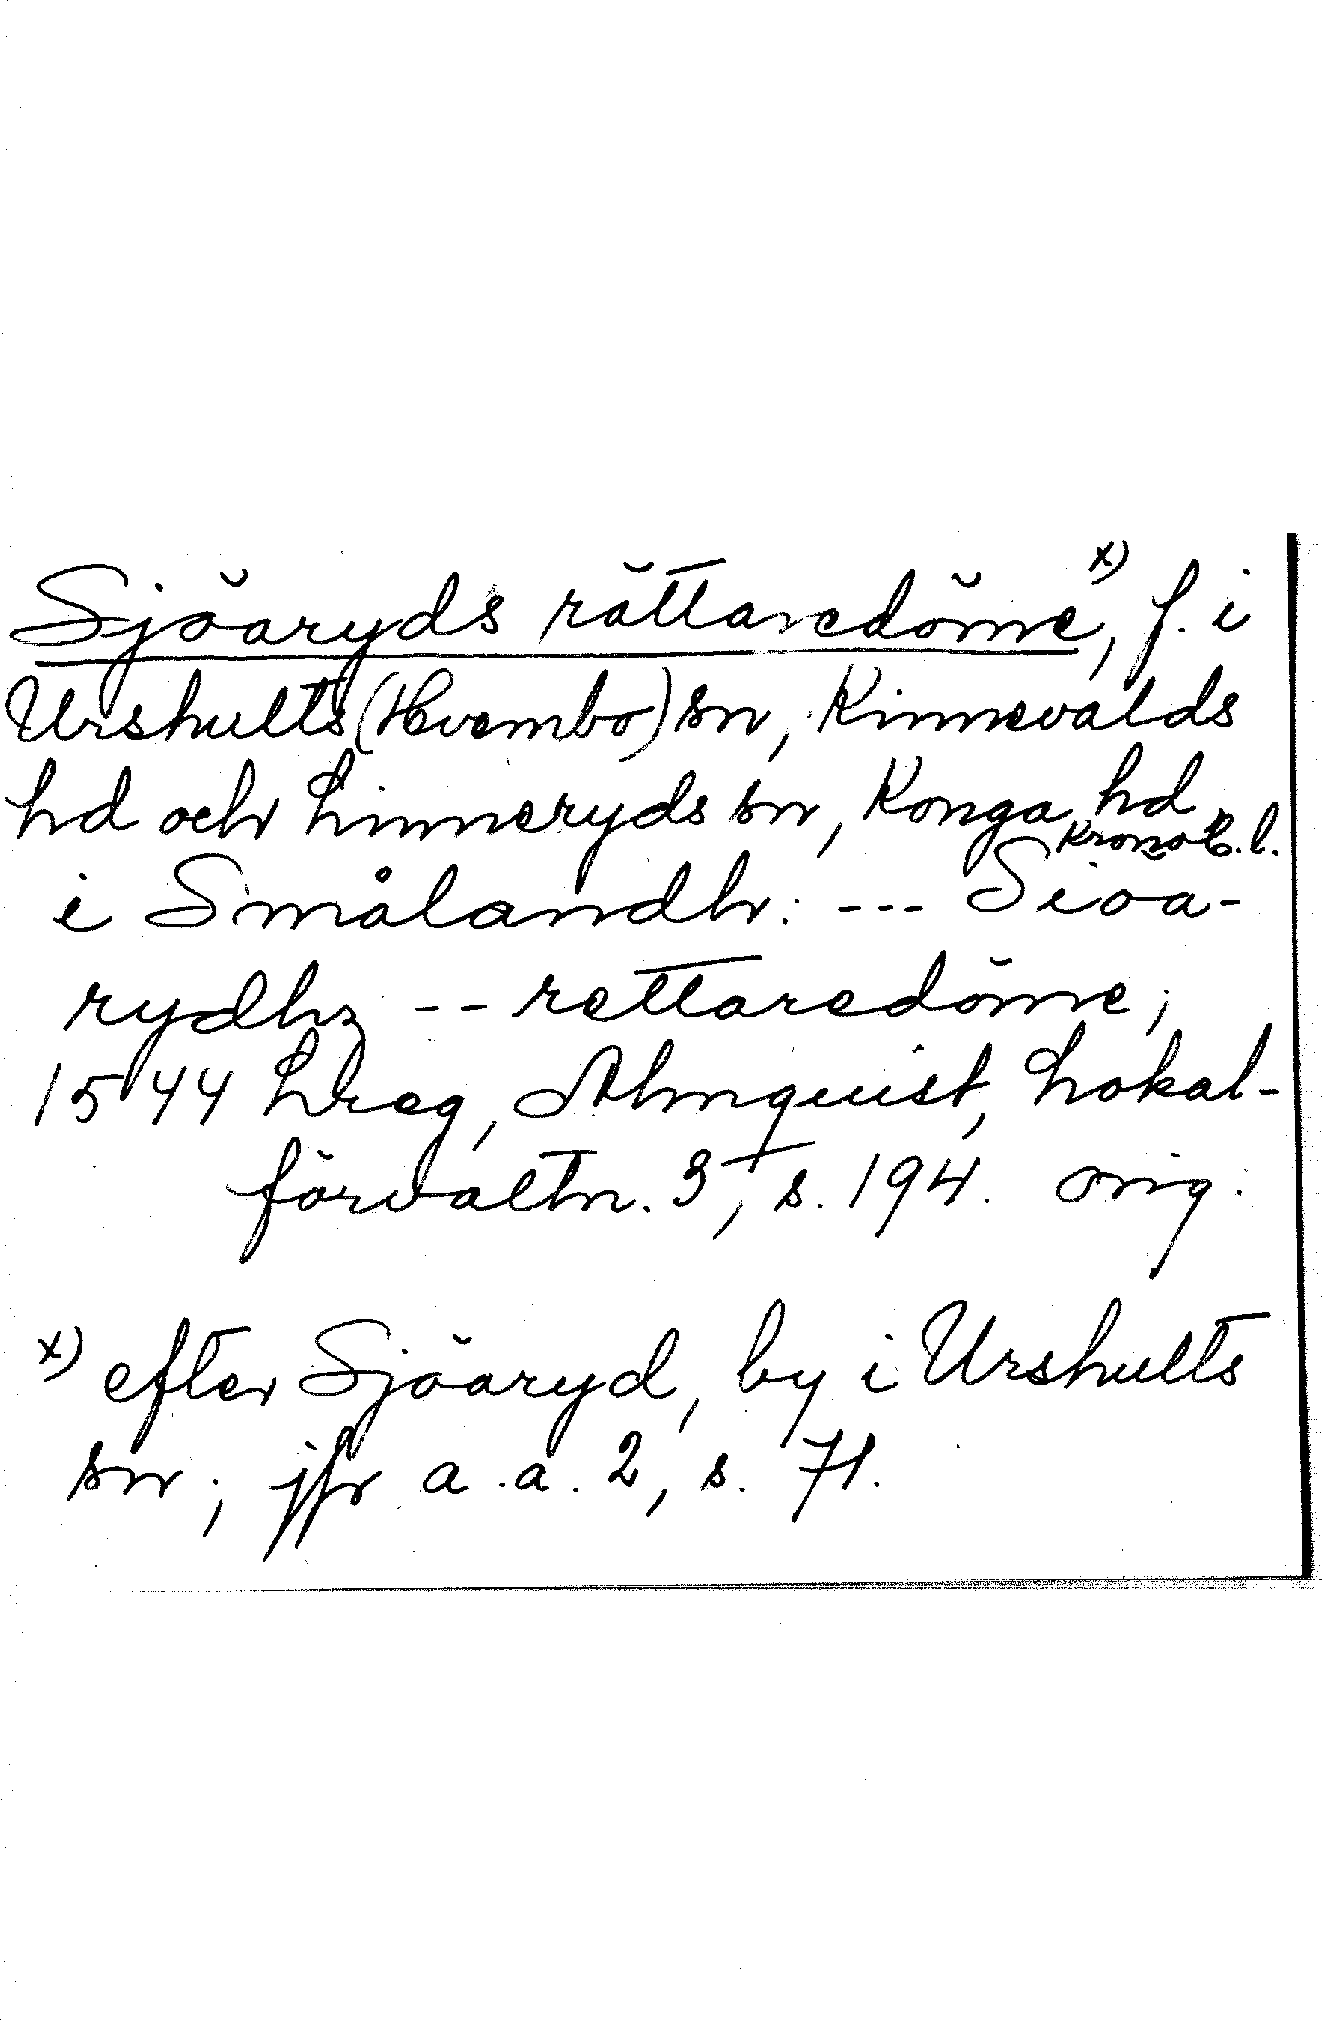 Sjöaryds rättaredöme,ˣ⁾ f. i
Urshults (Hvembo) sn, Kinnevalds
hd och Linneryds sn, Konga hd
Kronob. l.
i Smålandh: --- Sioa-
rydhz -- rettaredöme;
1544 Lreg, Almquist, Lokal-
förvaltn. 3, s. 194. orig.
x) efter Sjöaryd, by i Urshults
sn; jfr a.a. 2, s. 71.